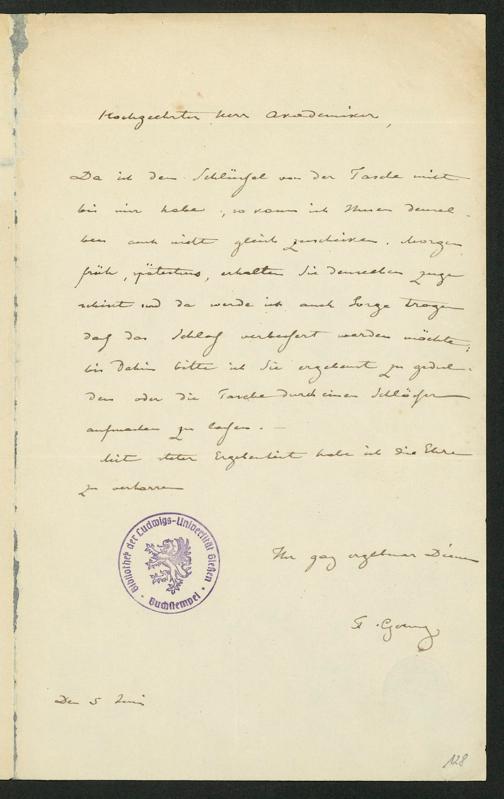 Hochgeehrter Herr Akademiker,
Da ich den Schlüssel von der Tasche nicht
bei mir habe, so kann ich Ihnen densel-
ben auch nicht gleich zuschicken. Morgen
früh, spätestens, erhalten Sie denselben zuge
schickt und da werde ich auch Sorge tragen
daß das Schloß verbessert werden möchte;
bis dahin bitte ich Sie ergebenst zu gedul-
den oder die Tasche durch einen Schlosser
aufmachen zu laßen. —
Mit steter Ergebenheit habe ich die Ehre
zu verharren
Ihr ganz ergebener Diener
Den 5 Juni
Bibliothek der Ludwigs-Universität Gießen
Buchstempel
128